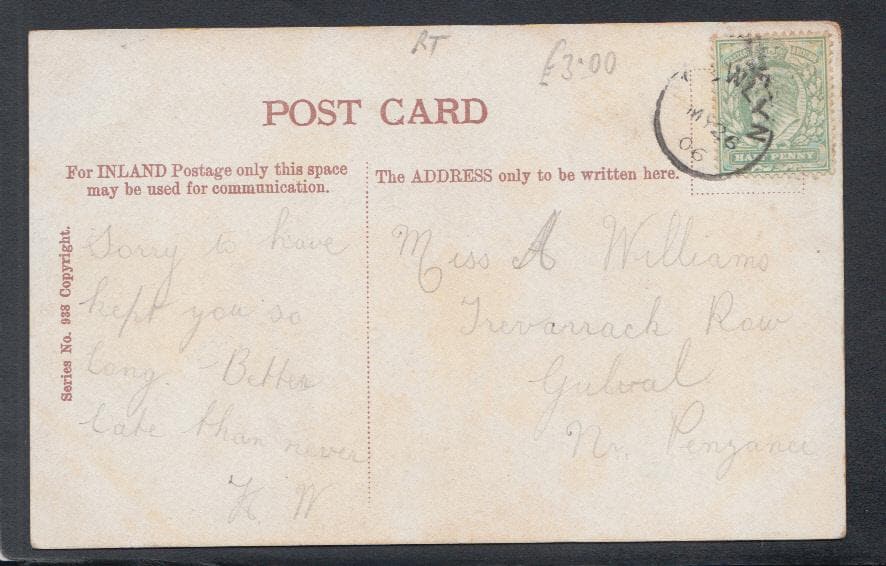 RT
£3.00
POST CARD
NEWLYN
MY 26
06
HALF PENNY
For INLAND Postage only this space
may be used for communication.
The ADDRESS only to be written here.
Series No. 938 Copyright.
Sorry to have
kept you so
long. Better
late than never
H W
Miss A Williams
Trevarrack Row
Gulval
Nr. Penzance